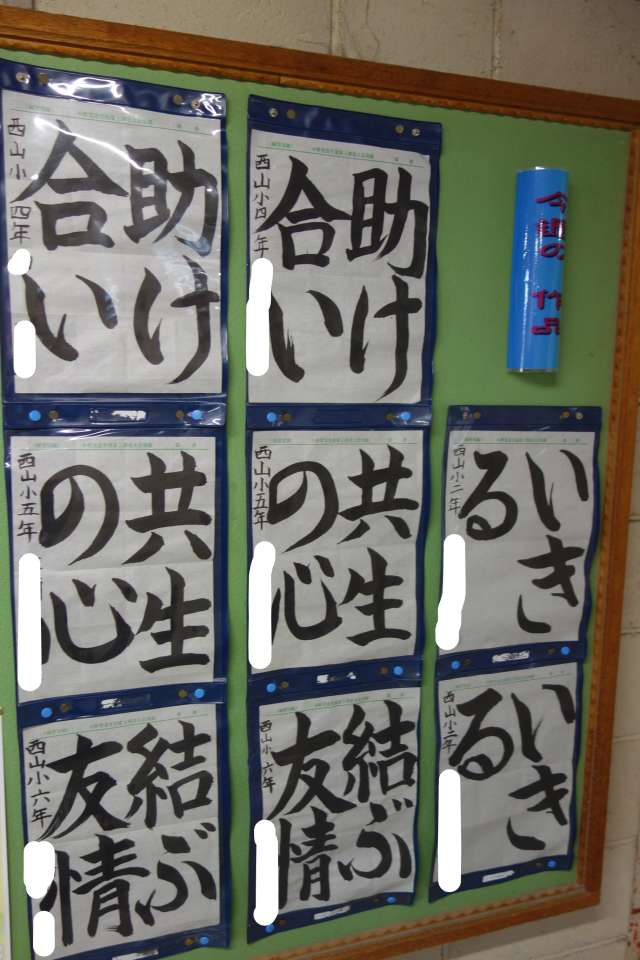 今週の　作品
助け
合い
西山小四年
助け
合い
西山小四年
共生
の心
西山小五年
共生
の心
西山小五年
いき
る
西山小二年
結ぶ
友情
西山小六年
結ぶ
友情
西山小六年
いき
る
西山小二年